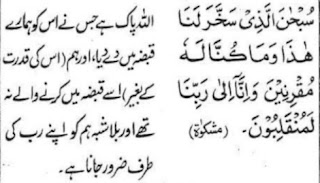 سُبْحٰنَ الَّذِیْ سَخَّرَ لَنَا
هٰذَا وَمَا كُنَّا لَهٗ
مُقْرِنِیْنَ وَاِنَّاۤ اِلٰی رَبِّنَا
لَمُنْقَلِبُوْنَ۔ (مشکوٰۃ)
اللہ پاک ہے جس نے اس کو ہمارے
قبضہ میں دے دیا، اور ہم (اس کی قدرت
کے بغیر) اسے قبضہ میں کرنے والے نہ
تھے اور بلا شبہ ہم کو اپنے رب کی
طرف ضرور جانا ہے۔